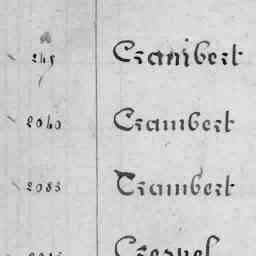 245 Crambert
2040 Crambert
2085 Crambert